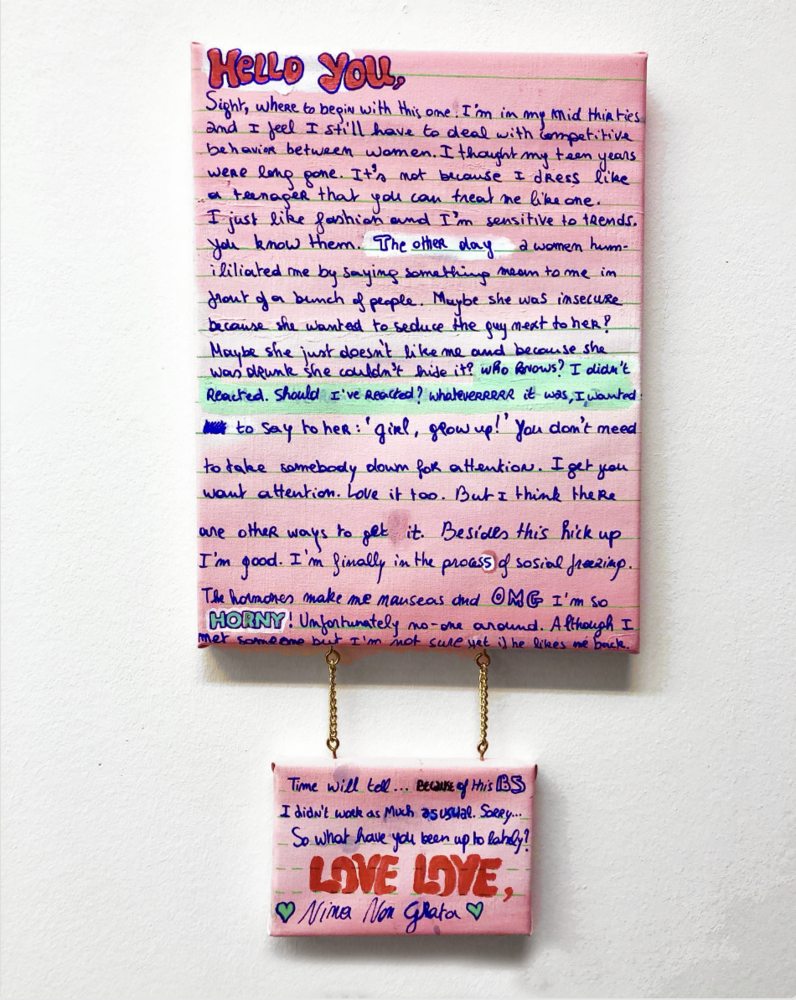 Hello You,
Sight, where to begin with this one. I'm in my mid thirties
and I feel I still have to deal with competitive
behavior between women. I thought my teen years
were long gone. It's not because I dress like
a teenager that you can treat me like one.
I just like fashion and I'm sensitive to trends.
You know them. The other day a women hum-
iliated me by saying something mean to me in
front of a bunch of people. Maybe she was insecure
because she wanted to seduce the guy next to her?
Maybe she just doesn't like me and because she
was drunk she couldn't hide it? Who knows? I didn't
React. Should I've reacted? Whateverrrrr it was, I wanted
to say to her: 'girl, grow up!' You don't need
to take somebody down for attention. I get you
want attention. Love it too. But I think there
are other ways to get it. Besides this hick up
I'm good. I'm finally in the process of sosial freezing.
The hormones make me nauseas and OMG I'm so
HORNY! Unfortunately no-one around. Although I
met someone but I'm not sure yet if he likes me back.
Time will tell... Because of this BS
I didn't work as much as usual. Sorry...
So what have you been up to lately?
LOVE LOVE,
Nina Non Grata